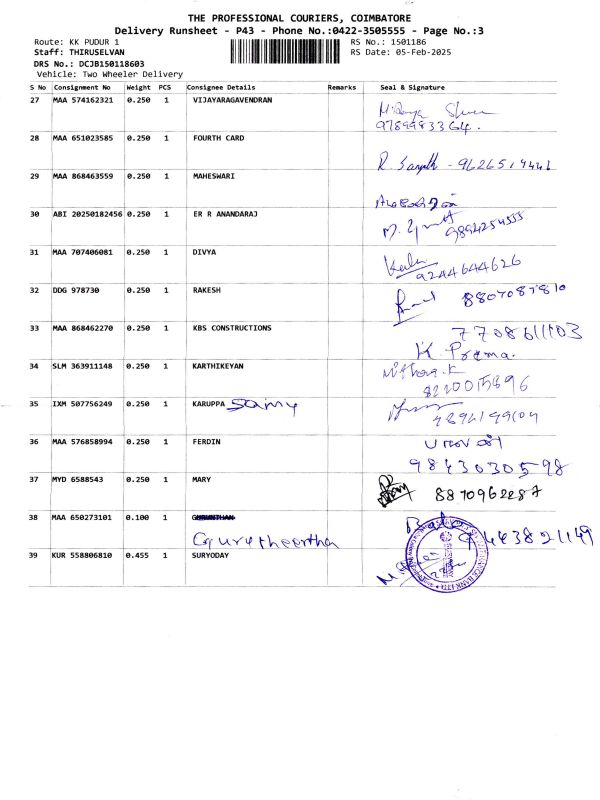 THE PROFESSIONAL COURIERS, COIMBATORE
Delivery Runsheet - P43 - Phone No.:0422-3505555 - Page No.:3
Route: KK PUDUR 1 RS No.: 1501186
Staff: THIRUSELVAN RS Date: 05-Feb-2025
DRS No.: DCJB150118603
Vehicle: Two Wheeler Delivery
S No Consignment No Weight PCS Consignee Details Remarks Seal & Signature
27 MAA 574162321 0.250 1 VIJAYARAGAVENDRAN
9789983364.
28 MAA 651023585 0.250 1 FOURTH CARD
29 MAA 868463559 0.250 1 MAHESWARI
30 ABI 20250182456 0.250 1 ER R ANANDARAJ
9894254555
31 MAA 707406081 0.250 1 DIVYA
9244644626
32 DDG 978730 0.250 1 RAKESH
8807087810
33 MAA 868462270 0.250 1 KBS CONSTRUCTIONS
7708611103
K. Prema.
34 SLM 363911148 0.250 1 KARTHIKEYAN
8220015896
35 IXM 507756249 0.250 1 KARUPPA samy
36 MAA 576858994 0.250 1 FERDIN
9843030598
37 MYD 6588543 0.250 1 MARY
8870962287
38 MAA 650273101 0.100 1
Gurutheertha
39 KUR 558806810 0.455 1 SURYODAY